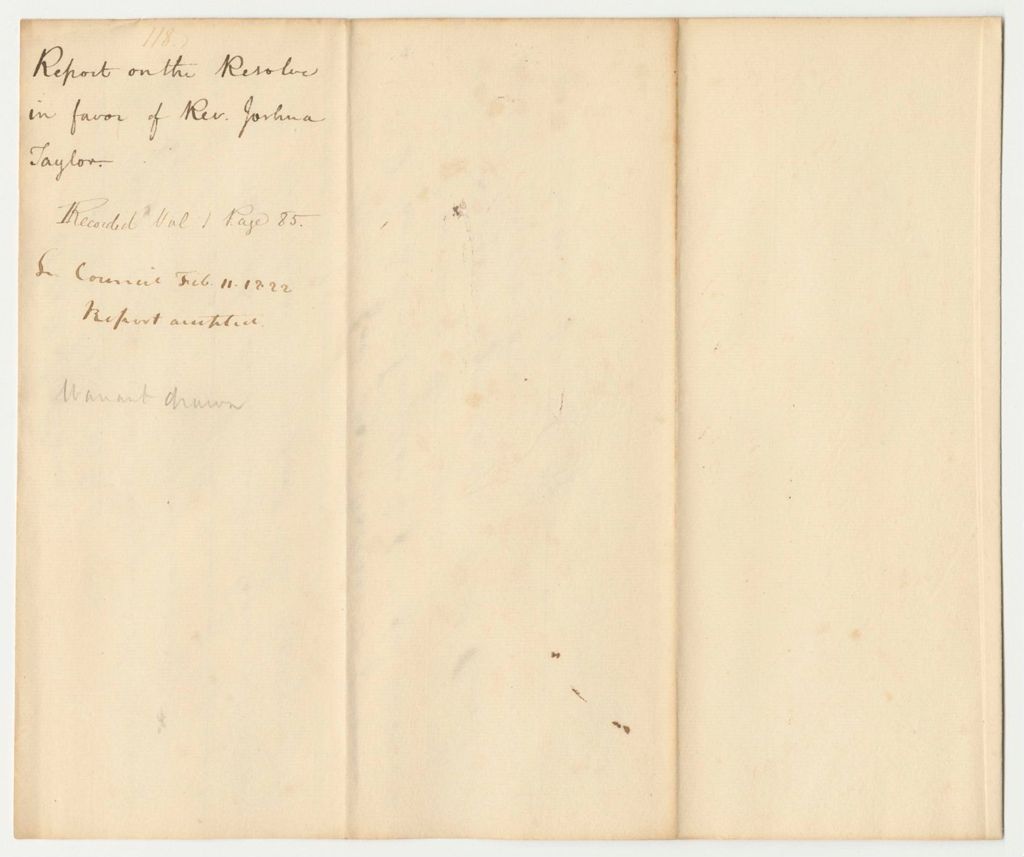 118.
Report on the Resolve
in favor of Rev. Joshua
Taylor.
Recorded Vol 1 Page 85.
In Council Feb. 11. 1822
Report accepted.
Warrant drawn